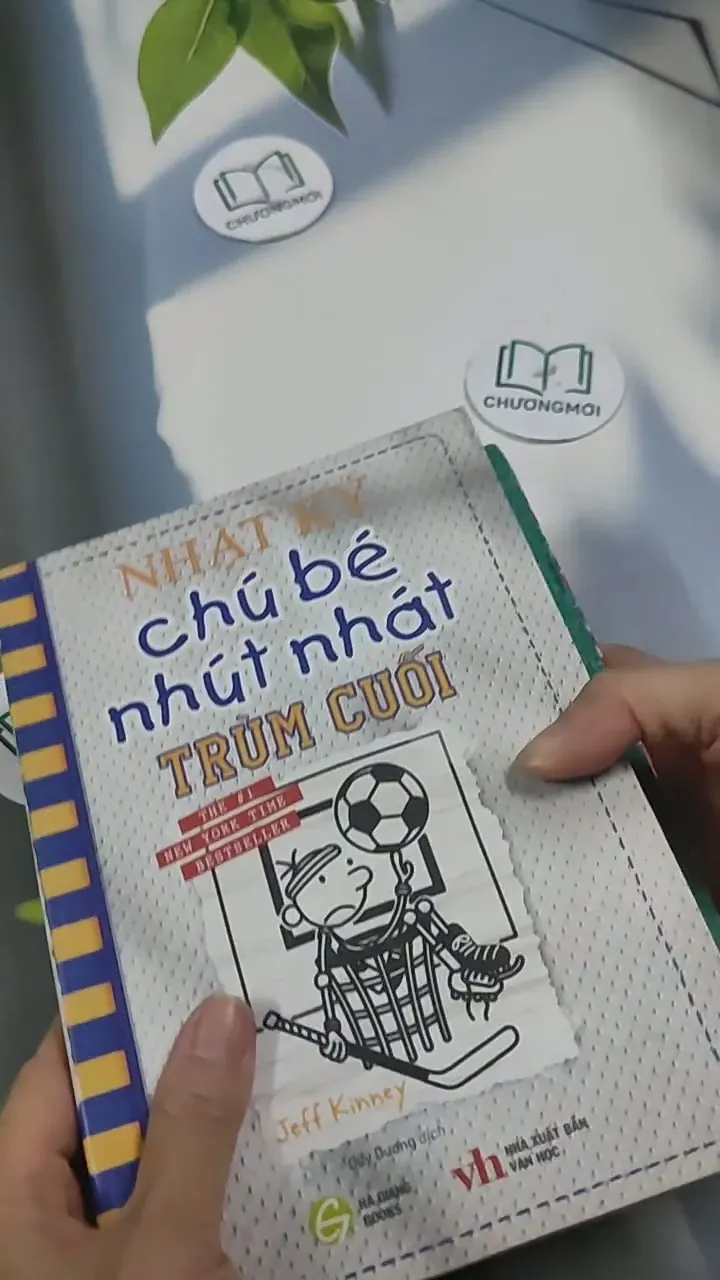 CHƯƠNGMỚI
CHƯƠNGMỚI
NHẬT KÝ
chú bé
nhút nhát
TRÙM CUỐI
THE #1
NEW YORK TIME
BESTSELLER
Jeff Kinney
Dương dịch
vh NHÀ XUẤT BẢN
VĂN HỌC
G HA GIANG
BOOKS